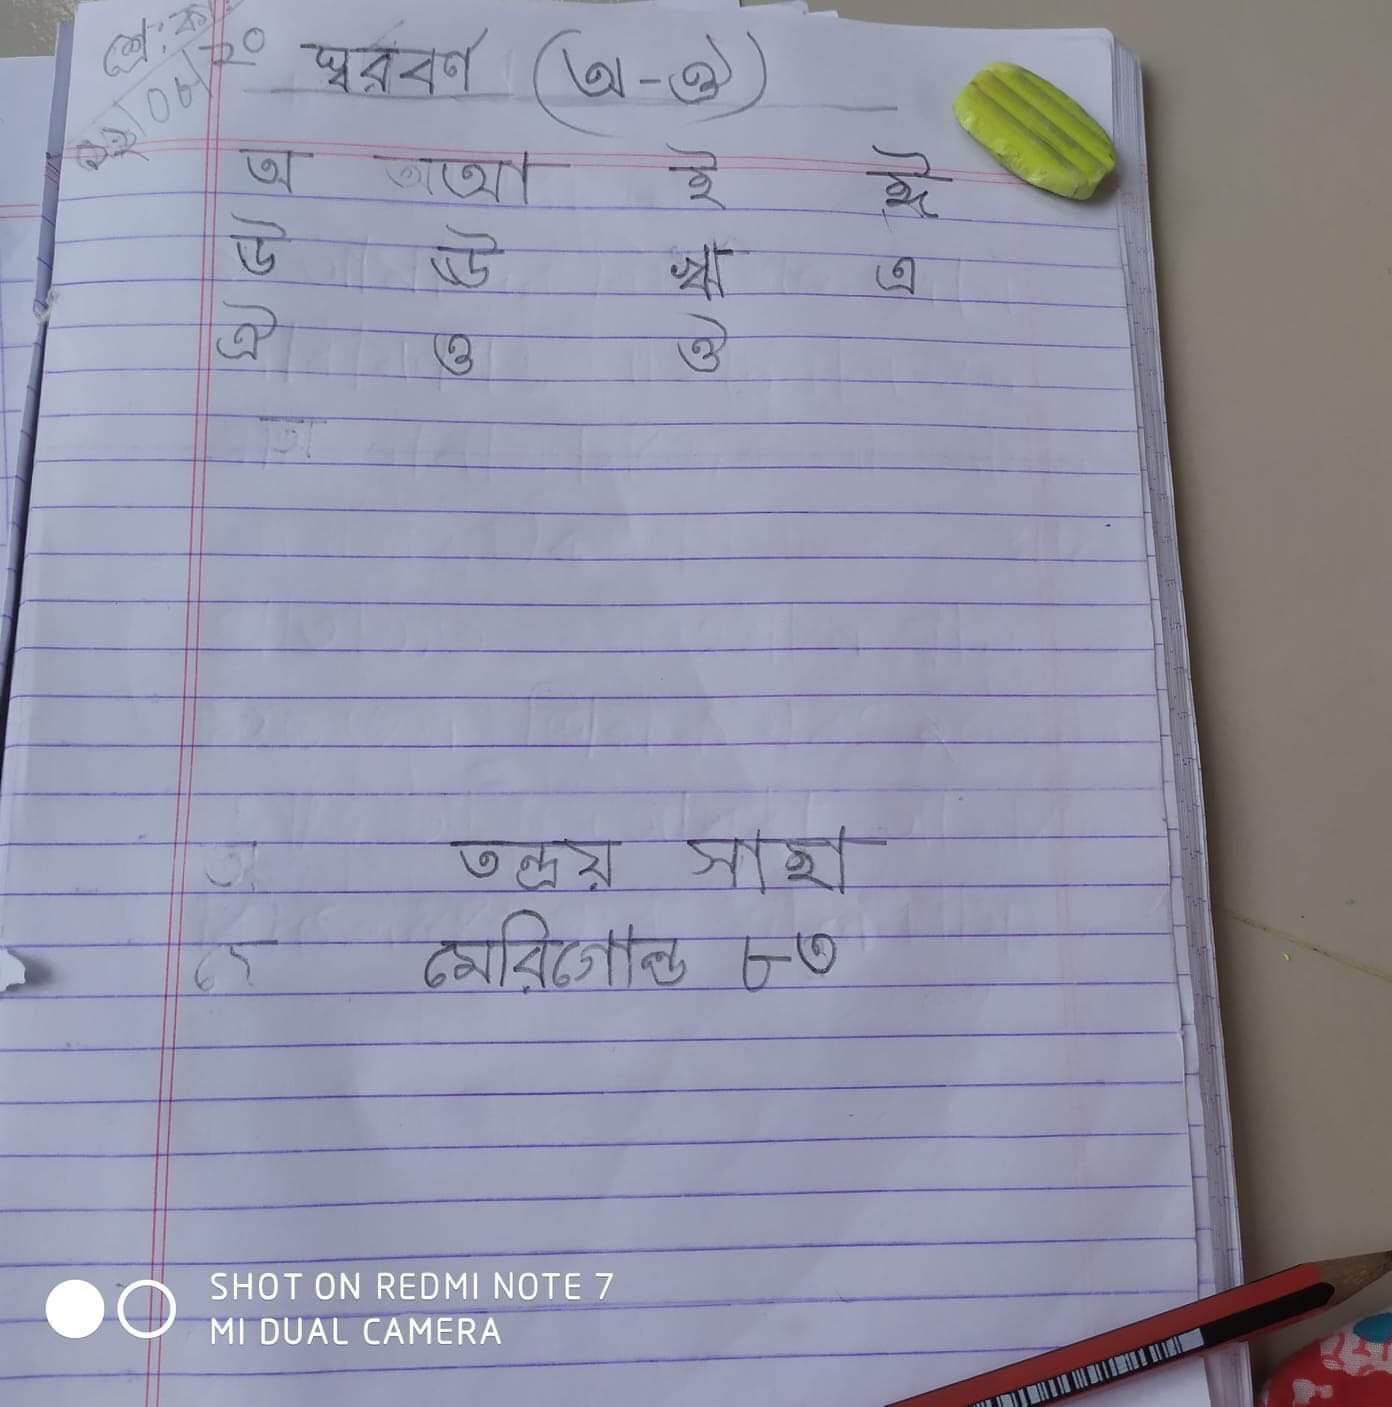 শ্রে: ক
২২/০৮/২০
স্বরবর্ণ (অ-ঔ)
অ আ ই ঈ
উ ঊ ঋ এ
ঐ ও ঔ
সাহা
মেরিগোল্ড ৮৩
SHOT ON REDMI NOTE 7
MI DUAL CAMERA